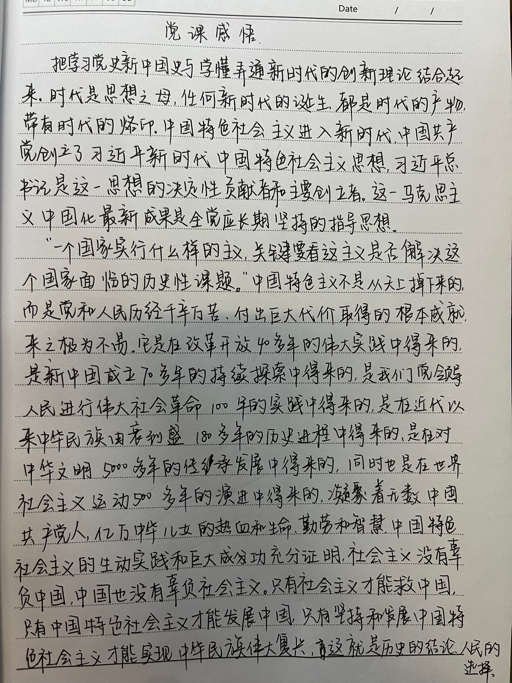 Date / /
党课感悟
把学习党史新中国史与学懂弄通新时代的创新理论结合起
来。时代是思想之母,任何新时代的诞生,都是时代的产物,
带有时代的烙印,中国特色社会主义进入新时代,中国共产
党创立了习近平新时代中国特色社会主义思想,习近平总
书记是这一思想的决定性贡献者和主要创立者。这一马克思主
义中国化最新成果是全党应长期坚持的指导思想。
"一个国家实行什么样的主义,关键要看这主义是否解决这
个国家面临的历史性课题。"中国特色主义不是从天上掉下来的,
而是党和人民历经千辛万苦、付出巨大代价取得的根本成就,
来之极为不易。它是在改革开放40多年的伟大实践中得来的,
是新中国成立70多年的持续探索中得来的,是我们党领导
人民进行伟大社会革命100年的实践中得来的,是在近代以
来中华民族由衰到盛180多年的历史进程中得来的,是在对
中华文明5000多年的传承发展中得来的,同时也是在世界
社会主义运动500多年的演进中得来的,凝聚着无数中国
共产党人,亿万中华儿女的热血和生命,勤劳和智慧,中国特色
社会主义的生动实践和巨大成功充分证明,社会主义没有辜
负中国,中国也没有辜负社会主义。只有社会主义才能救中国,
只有中国特色社会主义才能发展中国,只有坚持和发展中国特
色社会主义才能实现中华民族伟大复兴,这就是历史的结论,人民的
选择。